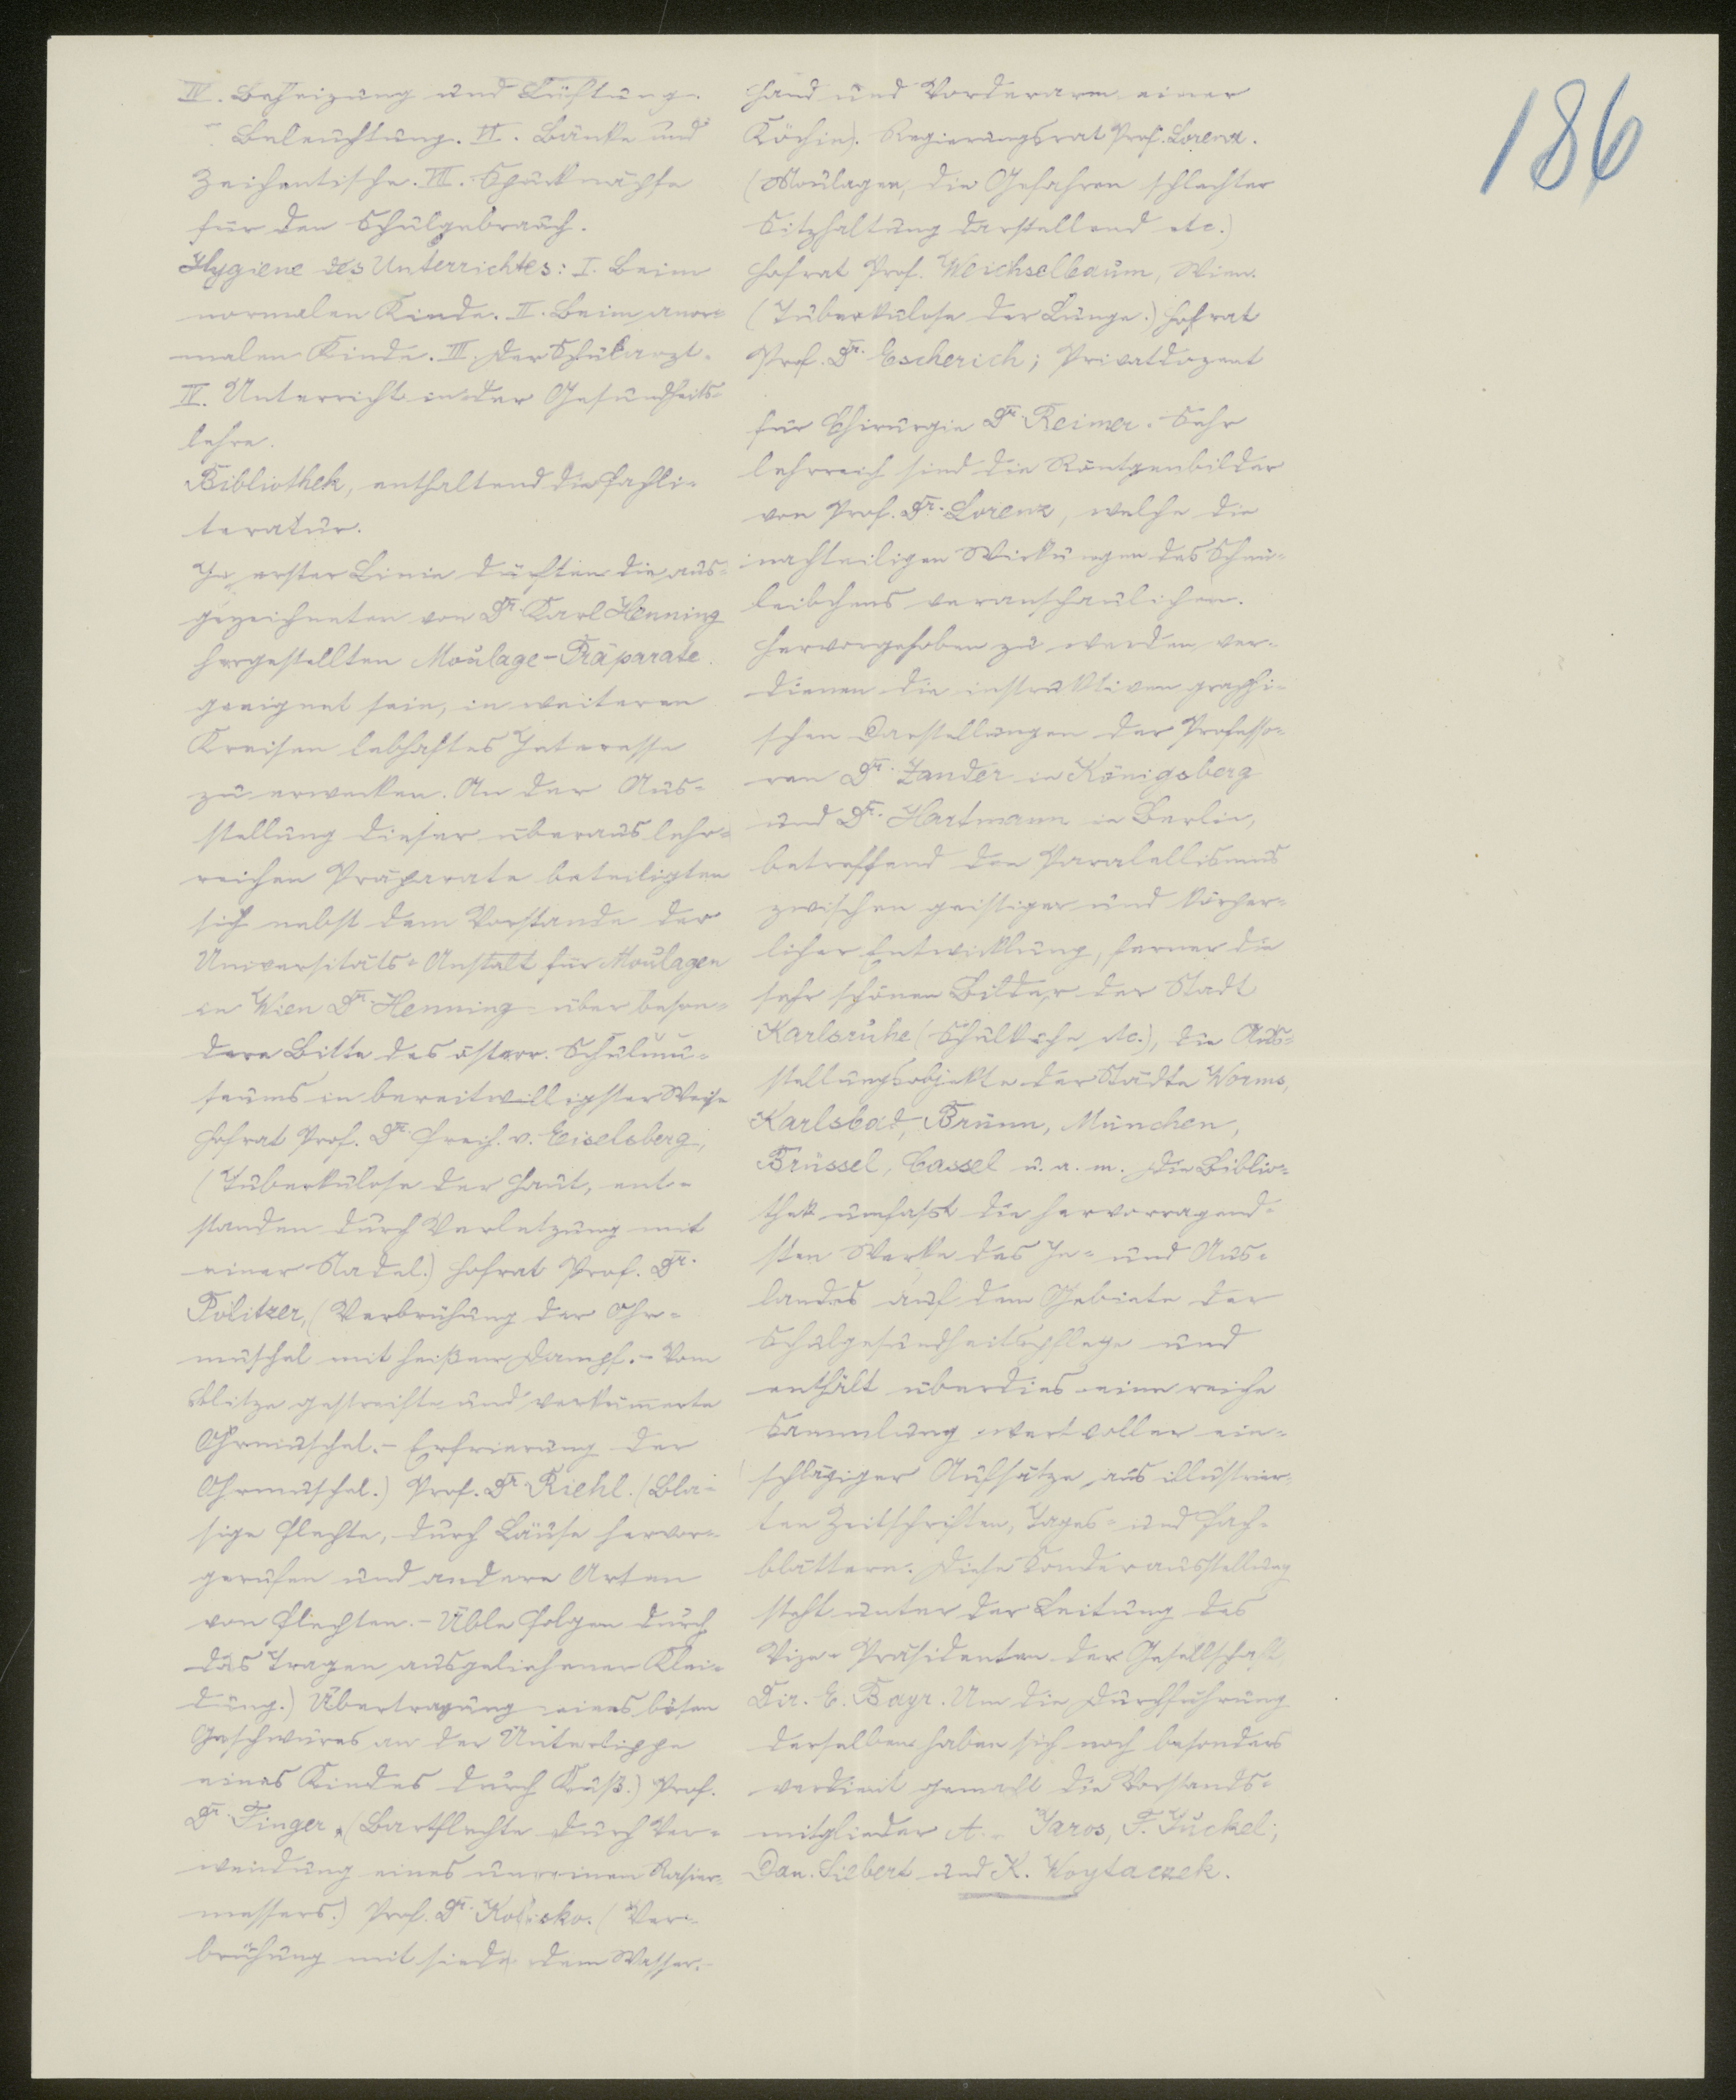 186
IV. Beheizung und Lüftung.
V. Beleuchtung. VI. Bänke und
Zeichentische. VII. Spucknäpfe
für den Schulgebrauch.
Hygiene des Unterrichtes: I. Beim
normalen Kinde. II. Beim anor-
malen Kinde. III. Der Schularzt.
IV. Unterricht in der Gesundheits-
lehre.
Bibliothek, enthaltend die Fachli-
teratur.
In erster Linie dürften die aus-
gezeichneten von Dr. Karl Henning
hergestellten Moulage-Präparate
geeignet sein, in weiteren
Kreisen lebhaftes Interesse
zu erwecken. An der Aus-
stellung dieser überaus lehr-
reichen Präparate beteiligten
sich nebst dem Vorstande der
Universitäts-Anstalt für Moulagen
in Wien Dr. Henning über beson-
dere Bitte des österr. Schulmu-
seums in bereitwilligster Weise
Hofrat Prof. Dr. Freih. v. Eiselsberg,
(Tuberkulose der Haut, ent-
standen durch Verletzung mit
einer Nadel.) Hofrat Prof. Dr.
Politzer, (Verbrühung der Ohr-
muschel mit heißem Dampf. - Vom
Blitze gestreifte und verkümmerte
Ohrmuschel. - Erfrierung der
Ohrmuschel.) Prof. Dr. Riehl. (Bla-
sige Flechte, durch Läuse hervor-
gerufen und andere Arten
von Flechten. - Üble Folgen durch
das Tragen ausgeliehener Klei-
dung.) Übertragung eines bösen
Geschwüres an der Unterlippe
eines Kindes durch Kuß.) Prof.
Dr. Finger, (Bartflechte durch Ver-
wendung eines unreinen Rasier-
messers.) Prof. Dr. Kolisko. (Ver-
brühung mit siedendem Wasser. -
Hand und Vorderarm einer
Köchin). Regierungsrat Prof. Lorenz.
(Moulagen, die Gefahren schlechter
Sitzhaltung darstellend etc.)
Hofrat Prof. Weichselbaum, Wien.
(Tuberkulose der Lunge.) Hofrat
Prof. Dr. Escherich; Privatdozent
für Chirurgie Dr. Reimer. Sehr
lehrreich sind die Röntgenbilder
von Prof. Dr. Lorenz, welche die
nachteiligen Wirkungen des Schnü-
leibchens veranschaulichen.
Hervorgehoben zu werden ver-
dienen die instruktiven graphi-
schen Darstellungen der Professo-
ren Dr. Zander in Königsberg
und Dr. Hartmann in Berlin,
betreffend den Paralellismus
zwischen geistiger und körper-
licher Entwicklung, ferner die
sehr schönen Bilder der Stadt
Karlsruhe (Schulküche etc.), die Aus-
stellungsobjekte der Städte Worms,
Karlsbad, Brünn, München,
Brüssel, Cassel u. a. m. Die Biblio-
thek umfaßt die hervorragend-
sten Werke des In- und Aus-
landes auf dem Gebiete der
Schulgesundheitspflege und
enthält überdies eine reiche
Sammlung wertvoller ein-
schlägiger Aufsätze aus illustrier-
ten Zeitschriften, Tages- und Fach-
blättern. Diese Sonderausstellung
steht unter der Leitung des
Vize-Präsidenten der Gesellschaft
Dir. E. Bayr. Um die Durchführung
derselben haben sich noch besonders
verdient gemacht die Vorstands-
mitglieder A. Jaros, F. Juckel,
Dan. Siebert und K. Woytaczek.